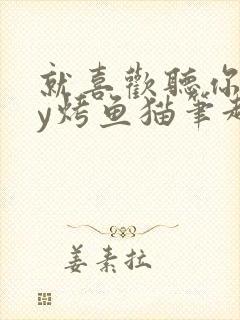 就喜歡聽你
y烤鱼猫筆趣
姜素拉